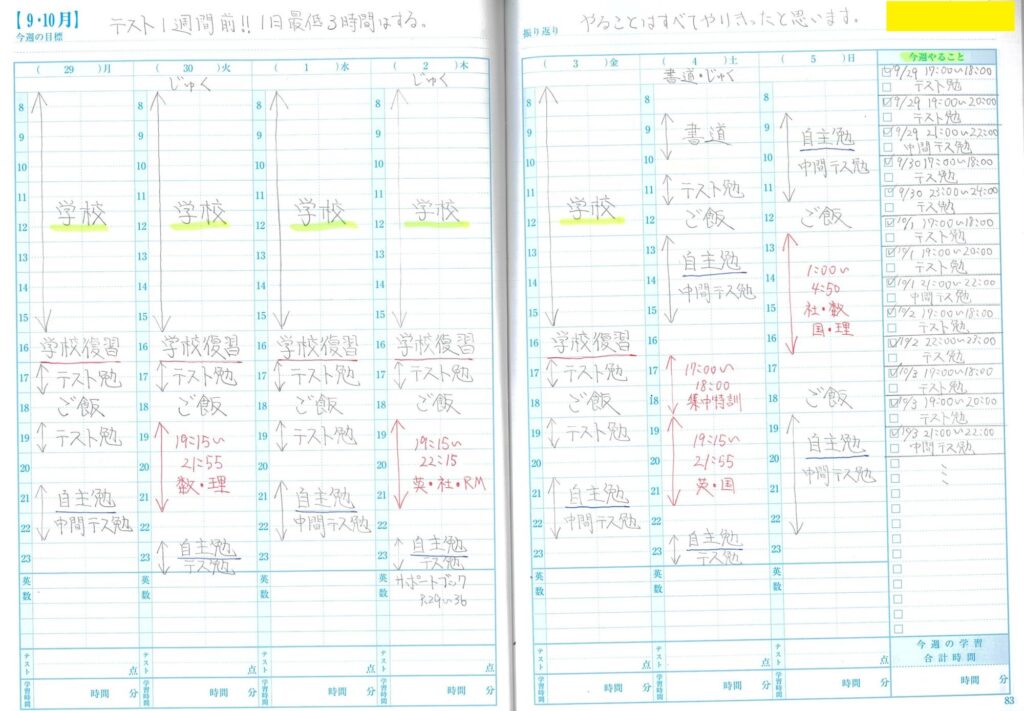 【9・10月】
今週の目標
テスト1週間前!! 1日最低3時間はする。
振り返り
やることはすべてやりきったと思います。
( 29 )月
( 30 )火
( 1 )水
( 2 )木
( 3 )金
( 4 )土
( 5 )日
じゅく
じゅく
書道・じゅく
8
9
10
11
12
13
14
15
16
17
18
19
20
21
22
23
学校
学校復習
テスト勉
ご飯
テスト勉
自主勉
中間テス勉
英
数
テスト
点
学習時間
時間 分
8
9
10
11
12
13
14
15
16
17
18
19
20
21
22
23
学校
学校復習
テスト勉
ご飯
19:15〜
21:55
数・理
自主勉
テス勉
英
数
テスト
点
学習時間
時間 分
8
9
10
11
12
13
14
15
16
17
18
19
20
21
22
23
学校
学校復習
テスト勉
ご飯
テスト勉
自主勉
中間テス勉
英
数
テスト
点
学習時間
時間 分
8
9
10
11
12
13
14
15
16
17
18
19
20
21
22
23
学校
学校復習
テスト勉
ご飯
19:15〜
22:15
英・社・RM
自主勉
テス勉
英
数
サポートブック
P.29〜36
テスト
点
学習時間
時間 分
8
9
10
11
12
13
14
15
16
17
18
19
20
21
22
23
学校
学校復習
テスト勉
ご飯
テスト勉
自主勉
中間テス勉
英
数
テスト
点
学習時間
時間 分
8
9
10
11
12
13
14
15
16
17
18
19
20
21
22
23
書道
テスト勉
ご飯
自主勉
中間テス勉
17:00〜
18:00
集中特訓
19:15〜
21:55
英・国
自主勉
テス勉
英
数
テスト
点
学習時間
時間 分
8
9
10
11
12
13
14
15
16
17
18
19
20
21
22
23
自主勉
中間テス勉
ご飯
1:00〜
4:50
社・数
国・理
ご飯
自主勉
中間テス勉
英
数
テスト
点
学習時間
時間 分
今週やること
9/29 17:00〜18:00
テスト勉
9/29 19:00〜20:00
テスト勉
9/29 21:00〜22:00
中間テス勉
9/30 17:00〜18:00
テス勉
9/30 23:00〜24:00
テス勉
10/1 17:00〜18:00
テスト勉
10/1 19:00〜20:00
テスト勉
10/1 21:00〜22:00
中間テス勉
10/2 17:00〜18:00
テスト勉
10/2 22:00〜23:00
テス勉
10/3 17:00〜18:00
テスト勉
10/3 19:00〜20:00
テスト勉
10/3 21:00〜22:00
中間テス勉
今週の学習
合計時間
時間 分
83